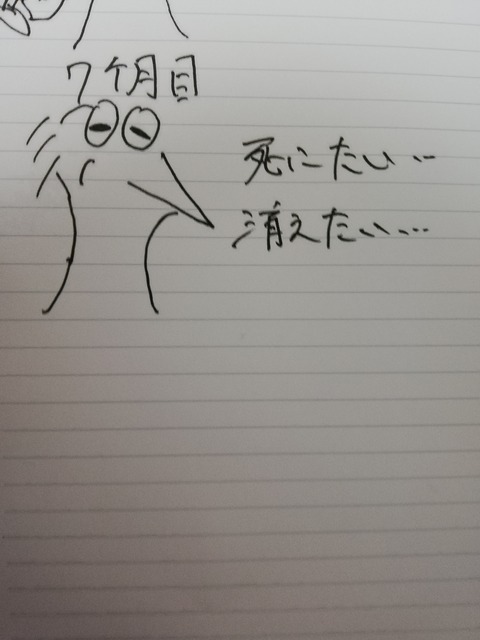 7ヶ月目
死にたい…
消えたい…